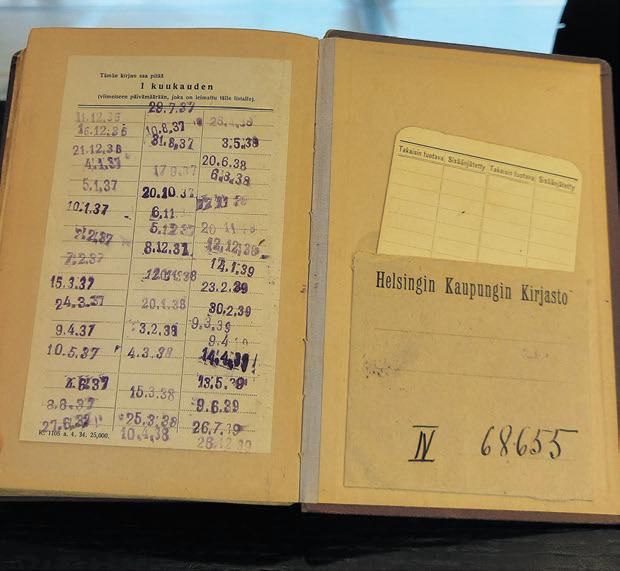 Tämän kirjan saa pitää
1 kuukauden
(viimeiseen päivämäärään, joka on leimattu tälle listalle).
29.7.37
11.12.36
16.12.36
21.12.36
4.1.37
5.1.37
10.1.37
7.2.37
15.3.37
24.3.37
9.4.37
10.5.37
4.6.37
8.6.37
27.6.37
10.8.37
31.8.37
17.9.37
20.10.37
6.11
5.12.37
8.12.37
20.1.38
3.2.38
4.3.38
15.3.38
25.3.38
10.4.38
3.5.38
20.6.38
6.8.38
12.12.38
14.1.39
23.2.39
30.2.39
9.3.39
14.4.39
13.5.39
9.6.39
26.7.39
28.12.39
K. 1105 a. 4. 34. 25,000.
Takaisin tuotava Sisäänjätetty Takaisin tuotava Sisäänjätetty
Helsingin Kaupungin Kirjasto
IV 68655